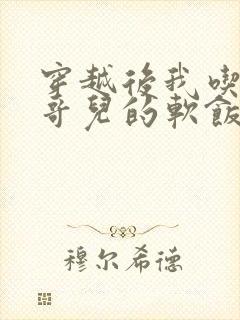 穿越後我喫
哥兒的軟飯
穆尔希德